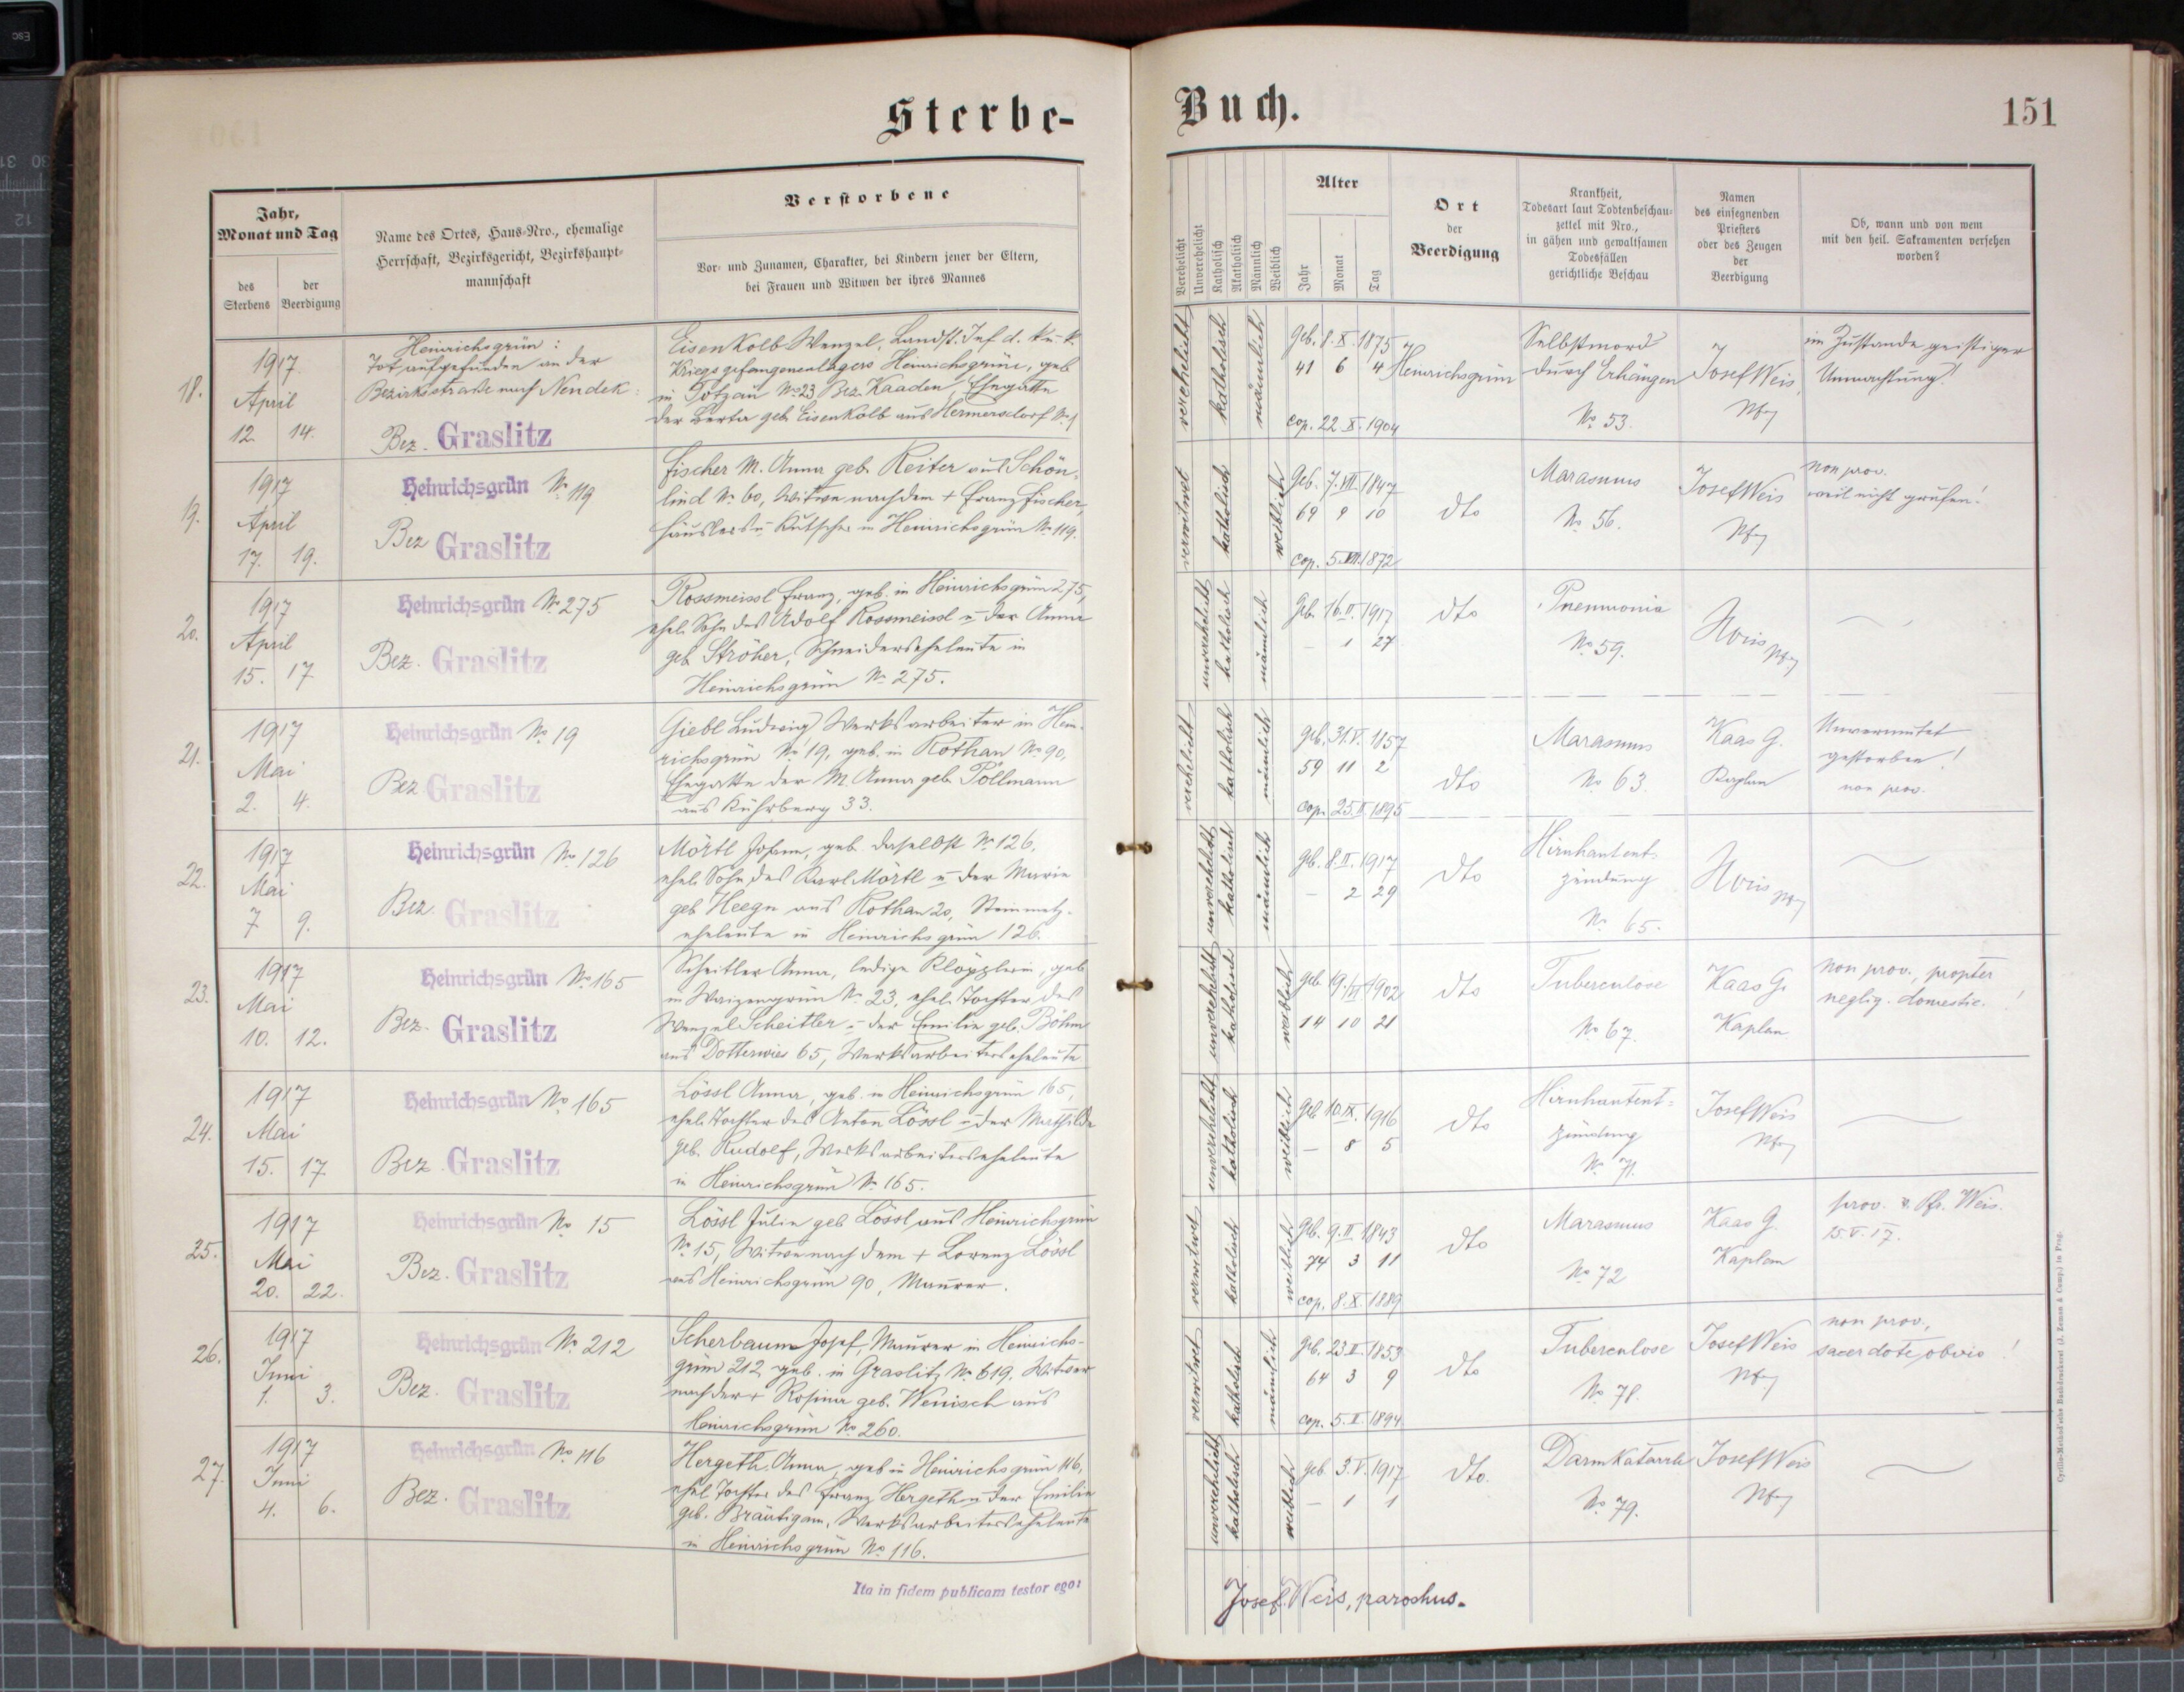 Sterbe-
Buch.
151
Jahr,
Monat und Tag
des
Sterbens
der
Beerdigung
Name des Ortes, Haus-Nro., ehemalige
Herrschaft, Bezirksgericht, Bezirkshaupt-
mannschaft
Verstorbene
Vor- und Zunamen, Charakter, bei Kindern jener der Eltern,
bei Frauen und Witwen der ihres Mannes
Verehelicht
Unverehelicht
Katholisch
Akatholisch
Männlich
Weiblich
Alter
Jahr
Monat
Tag
Ort
der
Beerdigung
Krankheit,
Todesart laut Todtenbeschau-
zettel mit Nro.,
in gähen und gewaltsamen
Todesfällen
gerichtliche Beschau
Namen
des einsegnenden
Priesters
oder des Zeugen
der
Beerdigung
Ob, wann und von wem
mit den heil. Sakramenten versehen
worden?
18.
1917.
April
12. 14.
Heinrichsgrün:
Tot aufgefunden an der
Bezirksstraße nach Neudek:
Bez. Graslitz
Eisenkolb Wenzel, Landst. Inf d. k. u. k.
Kriegsgefangenenlagers Heinrichsgrün, geb
in Totzau No 23 Bez. Kaaden, Ehegatte
der Berta geb. Eisenkolb aus Hermersdorf
verehelicht
katholisch
männlich
geb. 8. X. 1875
41 6 4
cop. 22 X. 1904
Heinrichsgrün
Selbstmord
durch Erhängen
No. 53.
Josef Weis,
Pfr
im Zustande geistiger
Umnachtung!
19.
1917
April
17. 19.
Heinrichsgrün No 119
Bez Graslitz
Fischer M. Anna geb. Reiter aus Schön-
lind No. 60, Witwe nach dem + Franz Fischer,
Häuslers u. Kutscher in Heinrichsgrün No 119.
verwitwet
katholisch
weiblich
Geb. 7. VII. 1847
69 9 10
cop. 5. VII. 1872
dto
Marasmus
No 56.
Josef Weis
Pfr
non prov.
weil nicht gerufen!
20.
1917
April
15. 17
Heinrichsgrün No 275
Bez. Graslitz
Rossmeissl Franz, geb. in Heinrichsgrün 275,
ehel. Sohn des Adolf Rossmeissl u. der Anna
geb Ströher, Schneiderseheleute in
Heinrichsgrün No 275.
unverehelicht
katholisch
männlich
Geb. 16. II. 1917
– 1 27
dto
Pneumonia
No 59.
Weis Pfr
21.
1917
Mai
2. 4.
Heinrichsgrün No 19
Bez Graslitz
Giebl Ludwig, Werksarbeiter in Hein-
richsgrün No 19, geb. in Rothau No 90,
Ehegatte der M. Anna geb. Pöllmann
aus Kührberg 33.
verehelicht
katholisch
männlich
geb. 31. V. 1857
59 11 2
cop. 25. II. 1895
dto
Marasmus
No 63.
Kaas G.
Kaplan
Unvermutet
gestorben!
non prov.
22.
1917
Mai
7 9.
Heinrichsgrün No 126
Bez. Graslitz
Mörtl Johann, geb. daselbst No 126,
ehel. Sohn des Karl Mörtl u. der Marie
geb Heegn aus Rothau 20, Steinmetz-
eheleute in Heinrichsgrün 126.
unverehelicht
katholisch
männlich
geb. 8. II. 1917
– 2 29
dto
Hirnhautent-
zündung
No. 65.
Weis Pfr
23.
1917
Mai
10. 12.
Heinrichsgrün No 165
Bez. Graslitz
Scheitler Anna, ledige Klöpplerin, geb
in Waizengrün No 23, ehel. Tochter des
Wenzel Scheitler u. der Emilie geb. Böhm
aus Dotterwies 65, Werksarbeiterseheleute.
unverehelicht
katholisch
weiblich
geb. 19. VI 1902
14 10 21
dto
Tuberculose
No 67.
Kaas G.
Kaplan
non prov., propter
neglig. domestic. !
24.
1917
Mai
15. 17
Heinrichsgrün No 165
Bez. Graslitz
Lössl Anna, geb. in Heinrichsgrün 165,
ehel. Tochter des Anton Lössl u der Mathilde
geb. Rudolf, Werksarbeiterseheleute
in Heinrichsgrün No 165.
unverehelicht
katholisch
weiblich
geb 10. IX. 1916
– 8 5
dto
Hirnhautent-
zündung
No 71.
Josef Weis
Pfr
25.
1917
Mai
20. 22.
Heinrichsgrün No 15
Bez. Graslitz
Lössl Julie geb Lössl aus Heinrichsgrün
No 15, Witwe nach dem + Lorenz Lössl
aus Heinrichsgrün 90, Maurer.
verwitwet
katholisch
weiblich
geb. 9. II 1843
74 3 11
cop. 8. X. 1889
dto
Marasmus
No 72
Kaas G.
Kaplan
prov. Pfr. Weis.
15. V. 17.
26.
1917
Juni
1. 3.
Heinrichsgrün No 212
Bez. Graslitz
Scherbaum Josef, Maurer in Heinrichs-
grün 212, geb. in Graslitz No 619, Witwer
nach der + Rosina geb. Wenisch aus
Heinrichsgrün No 260.
verwitwet
katholisch
männlich
geb. 23. II. 1853
64 3 9
cop. 5. II. 1894
dto
Tuberculose
No 78.
Josef Weis
Pfr
non prov.,
sacerdote obvio !
27.
1917
Juni
4. 6.
Heinrichsgrün No 116
Bez. Graslitz
Hergeth Anna, geb in Heinrichsgrün 116,
ehel Tochter des Franz Hergeth u der Emilie
geb. Bräutigam, Werksarbeiterseheleute
in Heinrichsgrün No 116.
unverehelicht
katholisch
weiblich
geb. 3. V. 1917
– 1 1
dto.
Darmkatarrh
No 79.
Josef Weis
Pfr
Ita in fidem publicam testor ego:
Josef Weis, parochus.